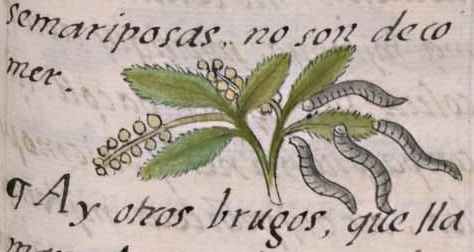 semariposas, no son de co
mer.
¶ Ay otros brugos, que lla